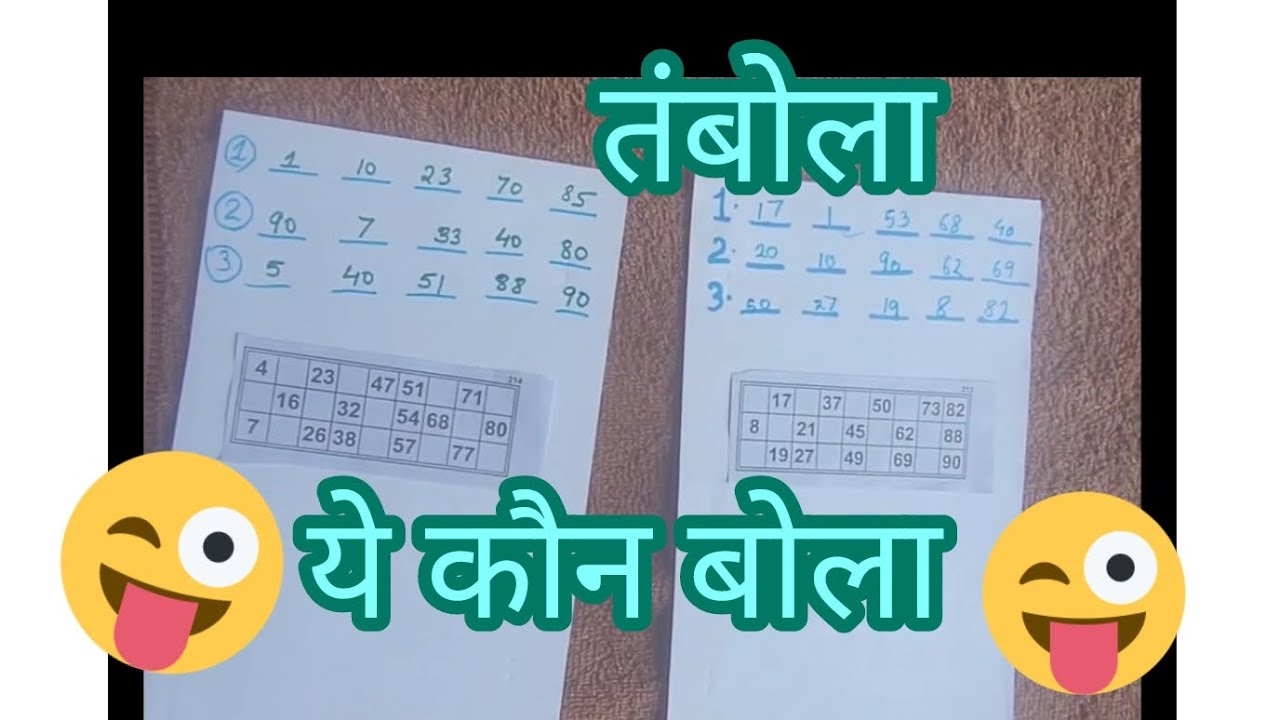 तंबोला
① 1 10 23 70 85
② 90 7 33 40 80
③ 5 40 51 88 90
214
4 23 47 51 71
16 32 54 68 80
7 26 38 57 77
1. 17 1 53 68 40
2. 20 10 90 62 69
3. 50 27 19 8 82
213
17 37 50 73 82
8 21 45 62 88
19 27 49 69 90
ये कौन बोला